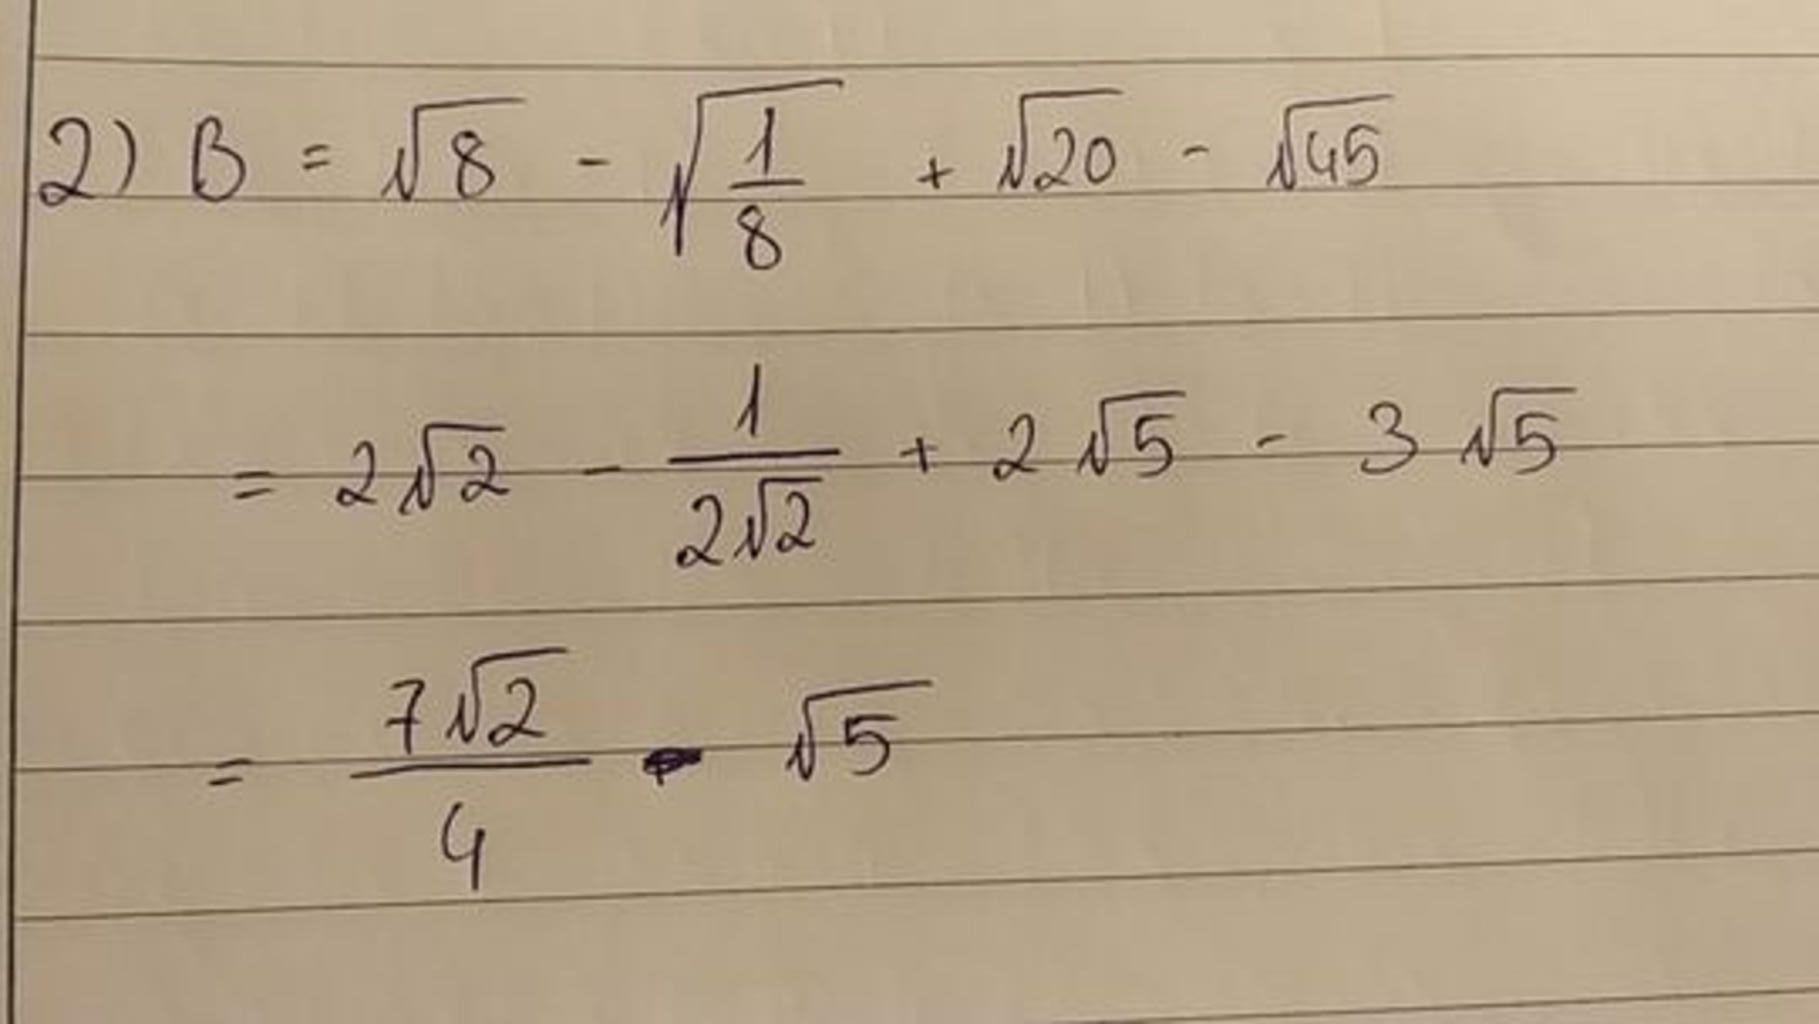 2) B = √8 - √(1/8) + √20 - √45
= 2√2 - 1/(2√2) + 2√5 - 3√5
= 7√2/4 - √5